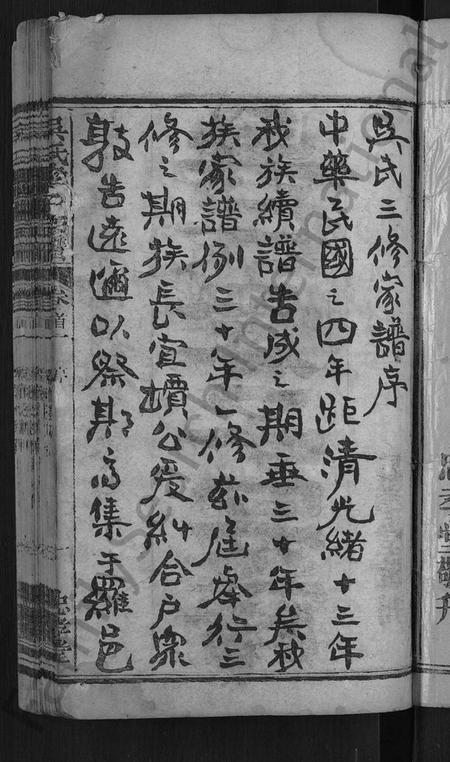 吳氏三修家譜序
中華民國之四年距清光緒十三年
我族續譜告成之期垂三十年矣秋
族家譜例三十年一修茲屆舉行三
修之期族長宜壝公爰糾合戶眾
敦告遠邇以祭期而集于羅邑
吳氏
卷首
序
忠孝堂
Family Search International